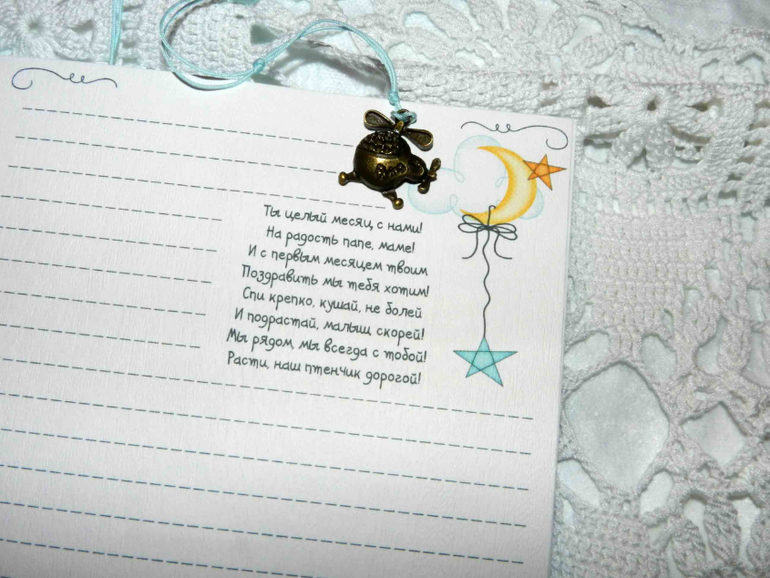 Ты целый месяц с нами!
На радость папе, маме!
И с первым месяцем твоим
Поздравить мы тебя хотим!
Спи крепко, кушай, не болей
И подрастай, малыш скорей!
Мы рядом, мы всегда с тобой!
Расти, наш птенчик дорогой!